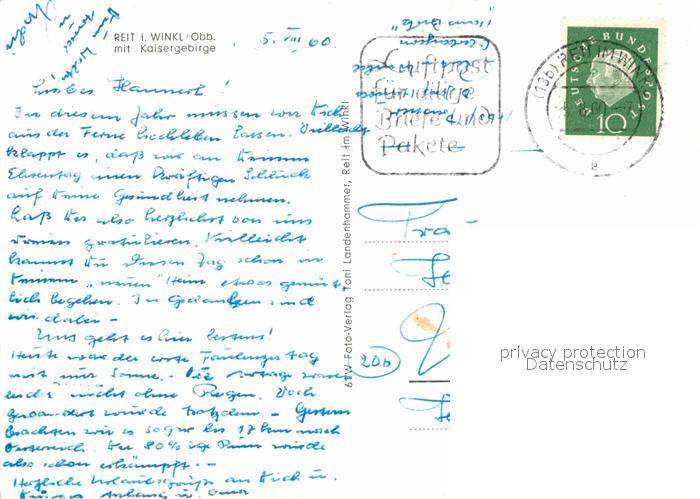 REIT i. WINKL/Obb.
mit Kaisergebirge
5. VIII 60.
Liebes Hannerl!
In diesem Jahr müssen wir Dich
aus der Ferne hochleben lassen. Vielleicht
klappt es, daß wir an Deinem
Ehrentag einen kräftigen Schluck
auf Deine Gesundheit nehmen.
Laß Dir also herzlichst von uns
Dreien gratulieren. Vielleicht
kannst Du diesen Tag schon in
Deinem „neuen" Heim etwas gemüt-
lich begehen. In Gedanken sind
wir dabei –
Uns geht es hier bestens!
Heute war der erste Faulenzertag
mit nur Sonne. – Die Vortage waren
leider nicht ohne Regen. Doch
gewandert wurde trotzdem. – Gestern
brachten wir es sogar bis 17 km nach
Oesterreich. Der 80%ige Rum wurde
also schon erkämpft. –
Herzliche Urlaubsgrüße an Dich u.
Deinen Anhang u. Oma
Luftpost
für eilige
Briefe und
Pakete
(13b) REIT IM WINKL
e
DEUTSCHE BUNDESPOST
10
65W Foto-Verlag Toni Landenhammer, Reit im Winkl
Fra
20b
privacy protection
Datenschutz